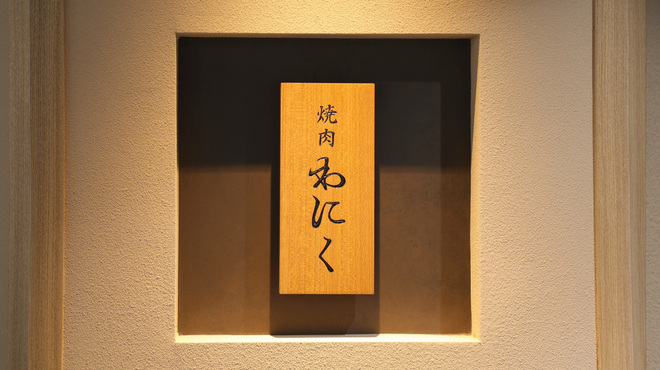 焼肉
わにく